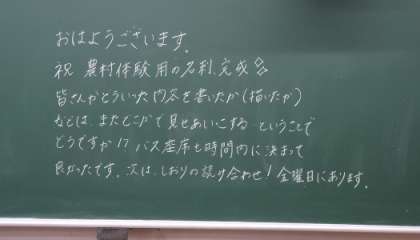 おはようございます。
祝 農村体験用の名刺、完成
皆さんがどういった内容を書いたか(描いたか)
などは、またどこかで見せあいこする ということで
どうですか!? バス座席も時間内に決まって
良かったです。次は、しおりの読み合わせ! 金曜日にあります。